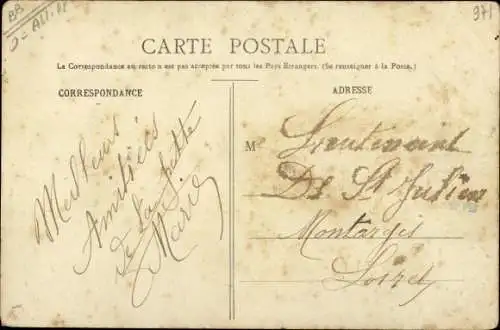 371
CARTE POSTALE
La Correspondance au recto n'est pas acceptée par tous les Pays Etrangers. (Se renseigner à la Poste.)
CORRESPONDANCE
ADRESSE
Meilleures
Amitiées
de la petite
Marie
M Lieutenant
De St Julien
Montargis
Loiret